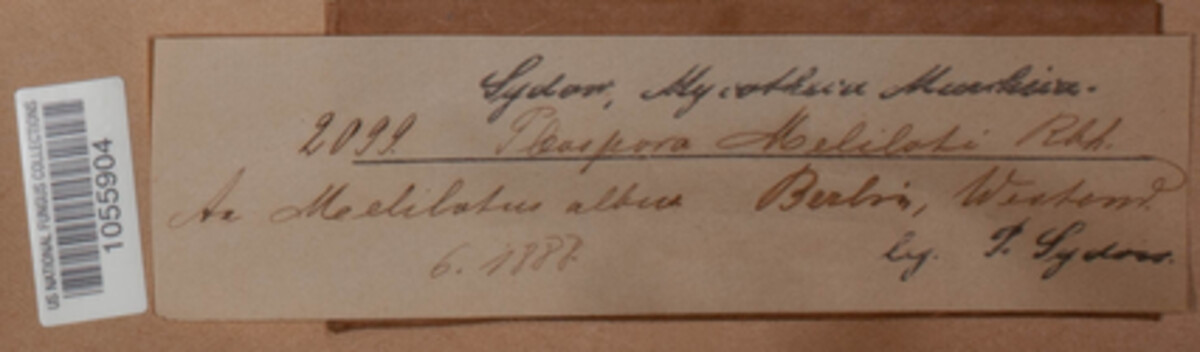 Sydow, Mycotheca Marchica.
2099. Pleospora Meliloti Rbh.
An Melilotus albus Berlin, Westend.
6. 1888. leg. P. Sydow.
US NATIONAL FUNGUS COLLECTIONS
1055904